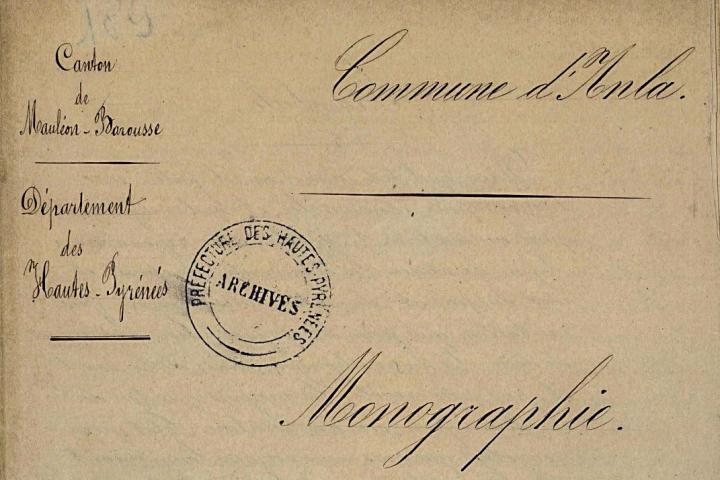 Canton
de
Mauléon-Barousse
Département
des
Hautes-Pyrénées
Commune d'Anla.
PRÉFECTURE DES HAUTES-PYRÉNÉES
ARCHIVES
Monographie.